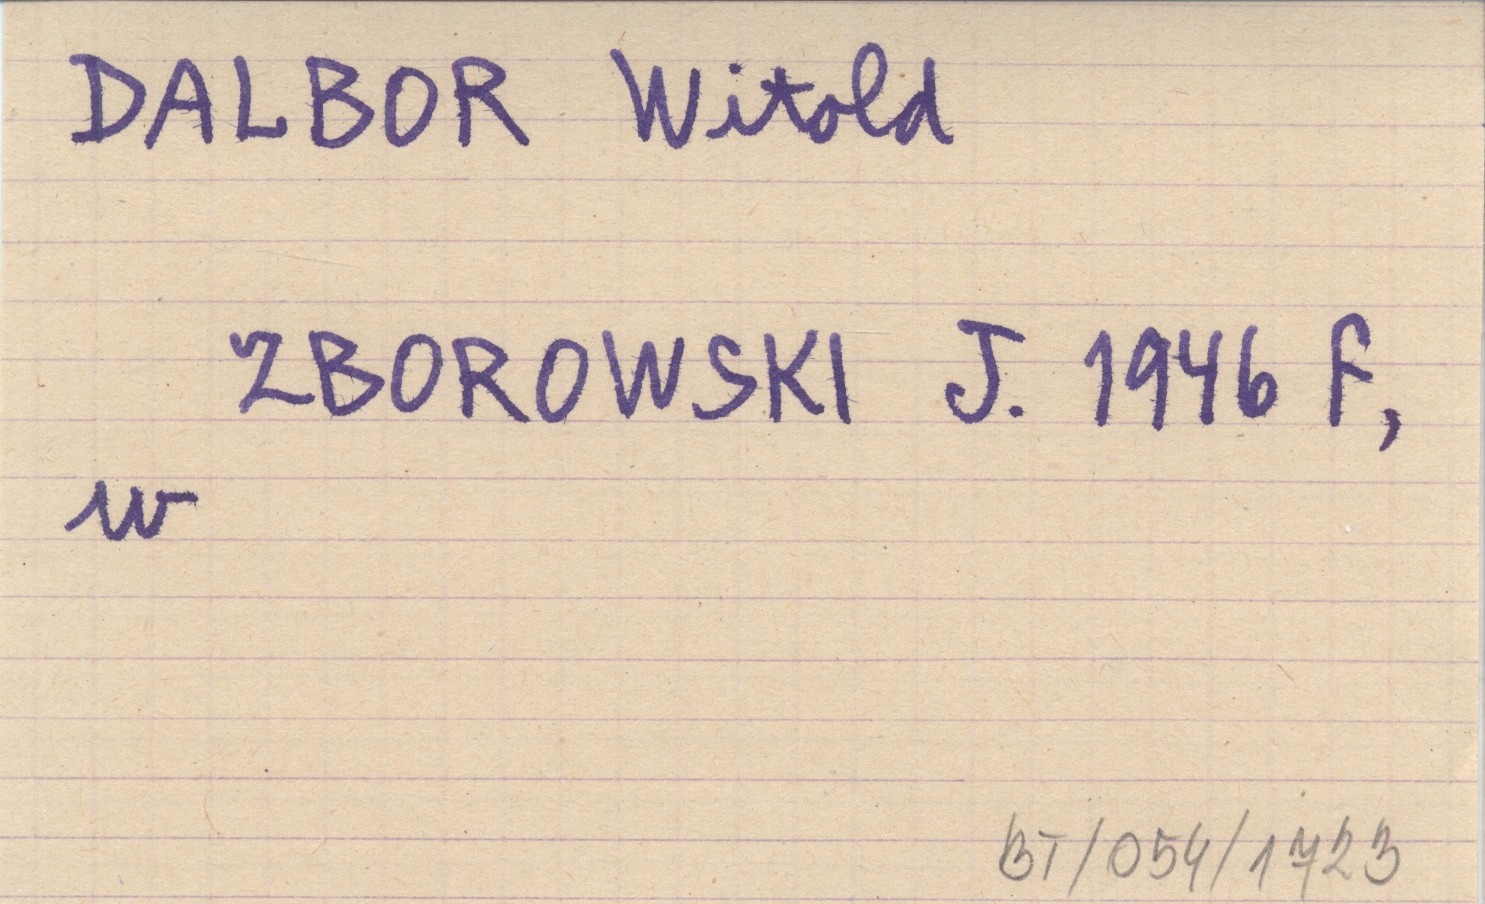 DALBOR Witold
ZBOROWSKI J. 1946 F,
w
BT/054/1723